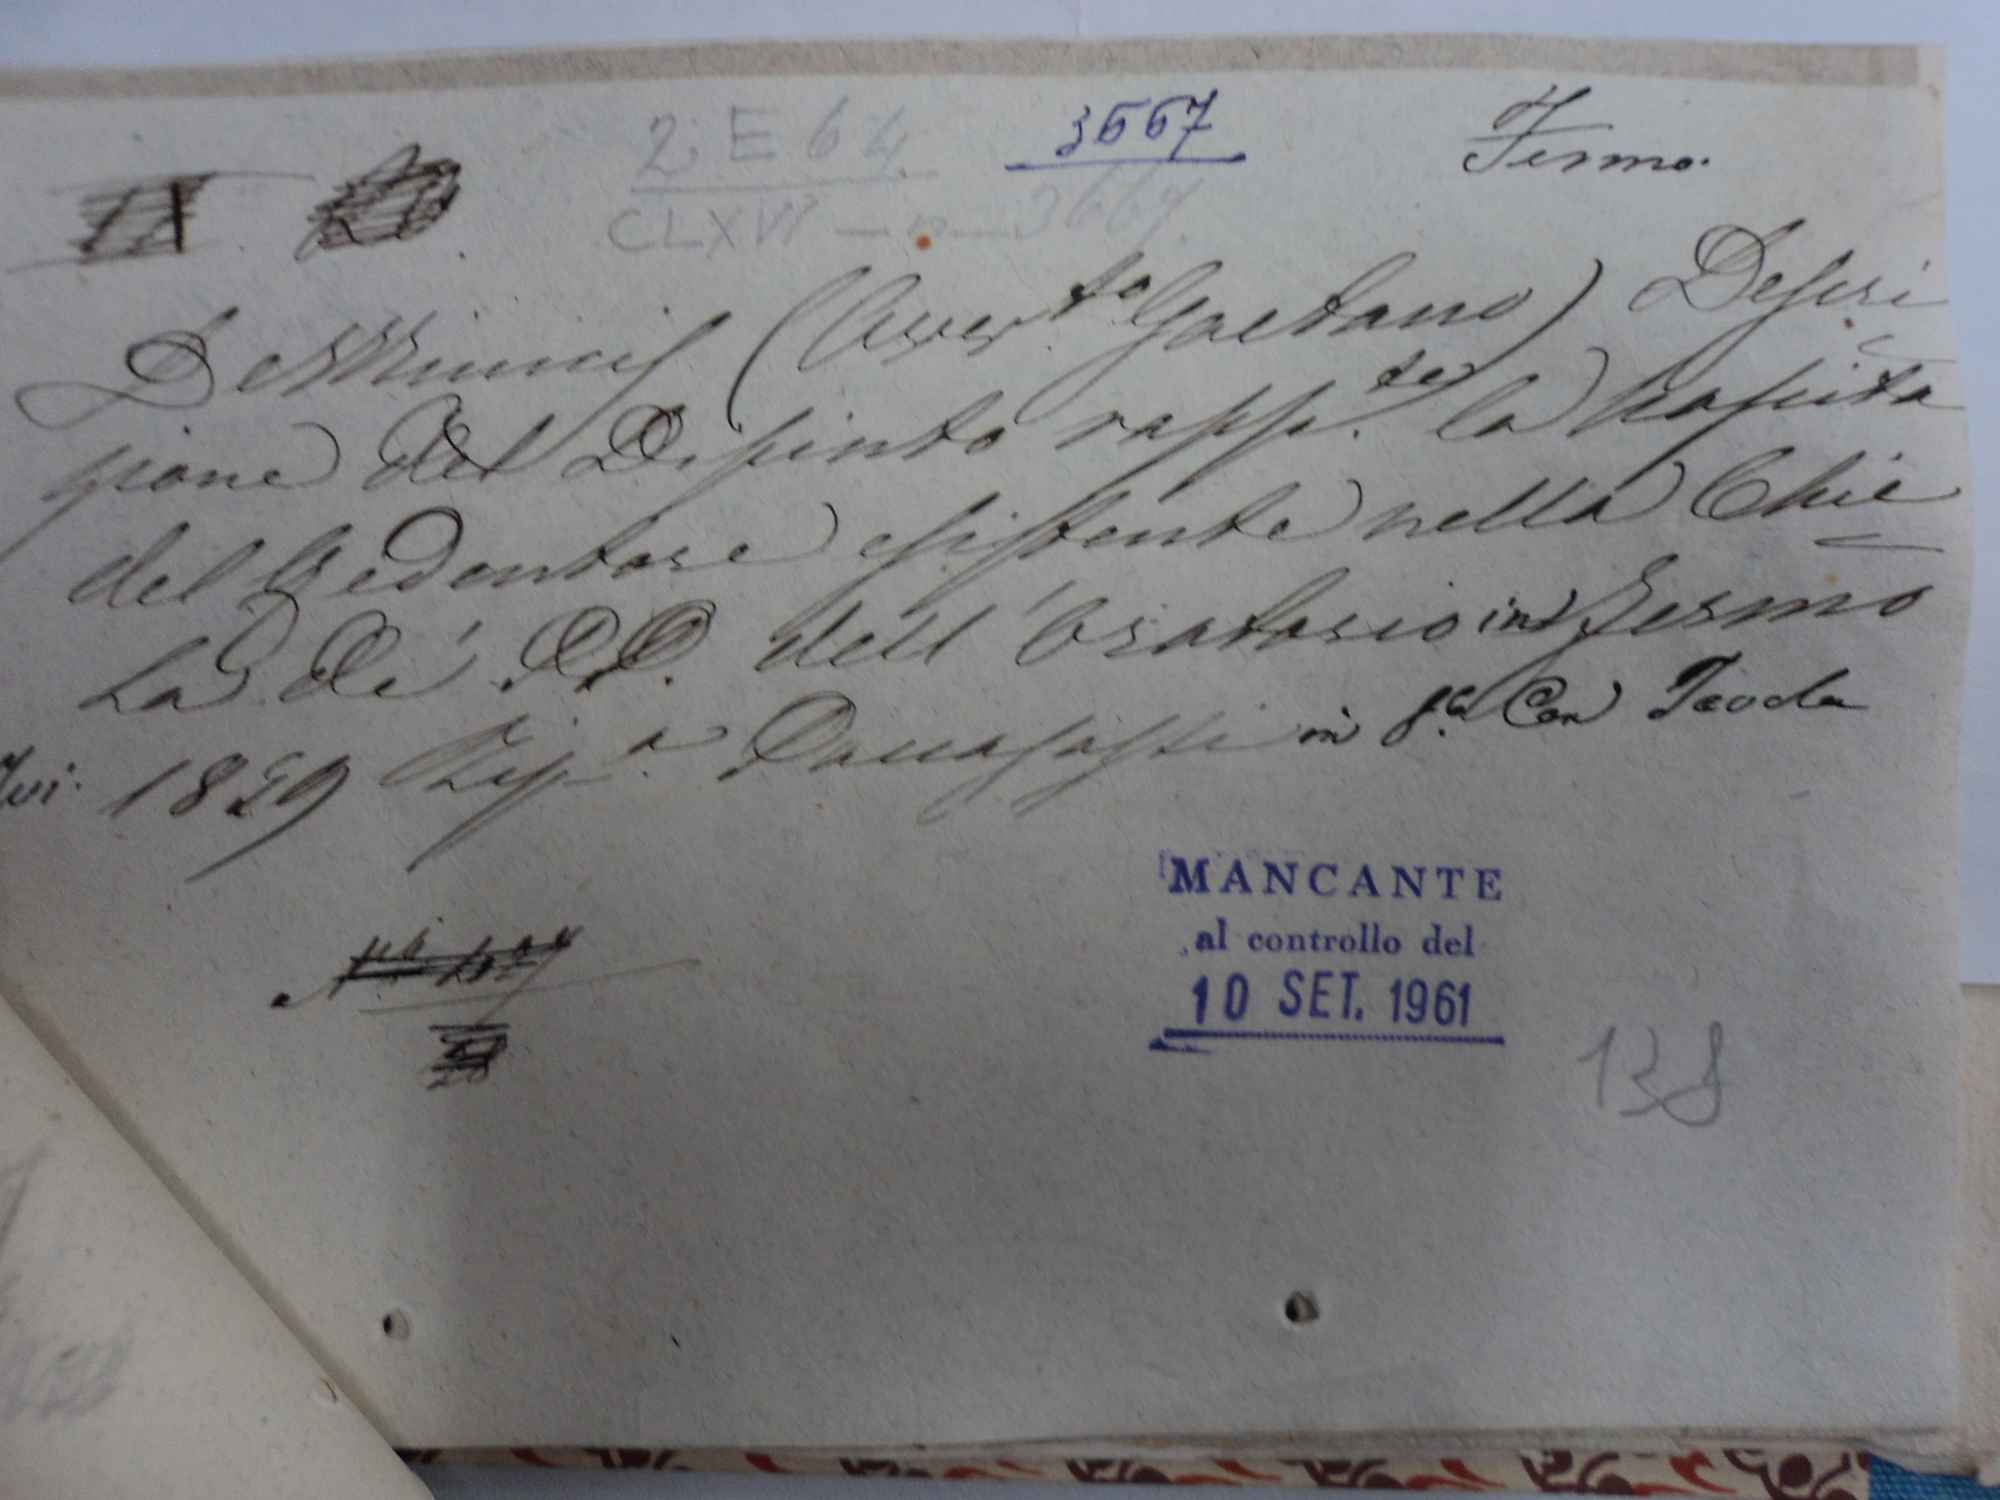 3667
Fermo.
2 E 64
CLXVI — n — 3667.
De Minicis (Avv.to Gaetano) Descri
zione del Dipinto rapp.te la Nascita
del Redentore esistente nella Chie
sa de' PP. dell'Oratorio in Fermo
Ivi. 1829 Tip.a Paccasassi in 8.º Con Tavola
MANCANTE
al controllo del
10 SET. 1961
138